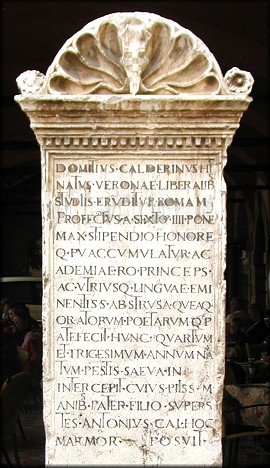 DOMITIVS·CALDERINVS·HI
NATVS·VERONAE·LIBERALIB
STVDIIS·ERVDITVR·ROMAM
PROFECTVS·A·SIXTO·IIII·PONE
MAX·STIPENDIO·HONORE
Q·PV·ACCVMVLATVR·AC
ADEMIAE·RO·PRINCEPS·
AC·VTRIVSQ·LINGVAE·EMI
NENTISS·ABSTRVSA·QVAEQ
ORATORVM·POETARVM·Q·P
ATEFECIT·HVNC·QVARTVM
ET·TRIGESIMVM·ANNVM·NA
TVM·PESTIS·SAEVA·IN
INTERCEPIT·CVIVS·PIISS·M
ANIB·PATER·FILIO·SVPERS
TES·ANTONIVS·CAL·HOC
MARMOR — POSVIT·